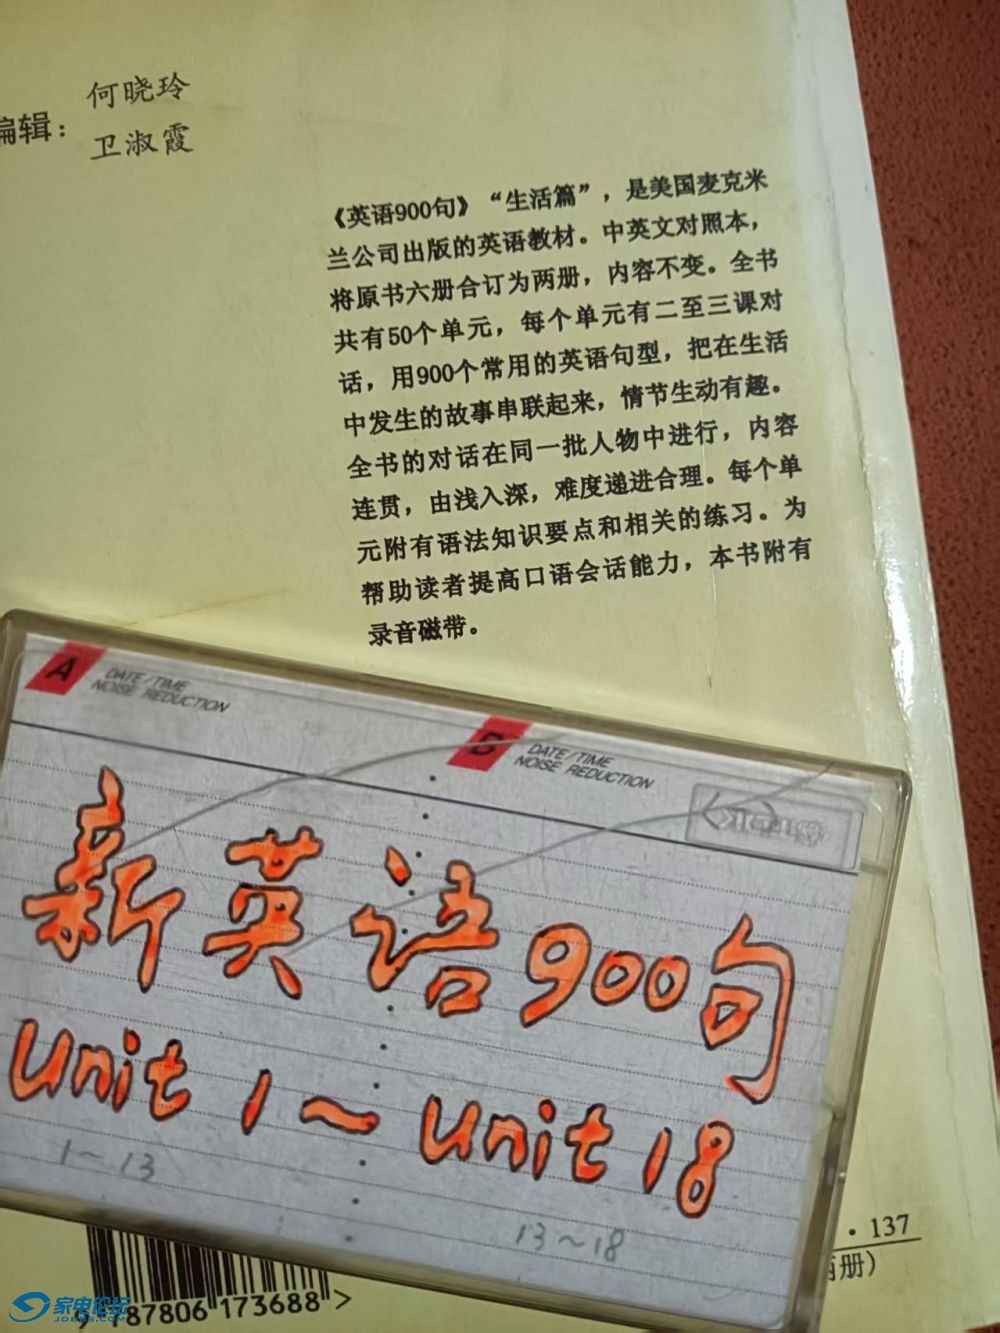 编辑：
何晓玲
卫淑霞
《英语900句》“生活篇”，是美国麦克米
兰公司出版的英语教材。中英文对照本，
将原书六册合订为两册，内容不变。全书
共有50个单元，每个单元有二至三课对
话，用900个常用的英语句型，把在生活
中发生的故事串联起来，情节生动有趣。
全书的对话在同一批人物中进行，内容
连贯，由浅入深，难度递进合理。每个单
元附有语法知识要点和相关的练习。为
帮助读者提高口语会话能力，本书附有
录音磁带。
A DATE/TIME
NOISE REDUCTION
B DATE/TIME
NOISE REDUCTION
新英语900句
Unit 1～Unit 18
1～13
13～18
·137
册）
9 787806 173688 >
家电论坛